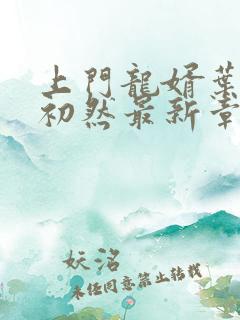 上門龍婿葉
初然最新章
妖洺
未任同意禁止轉載